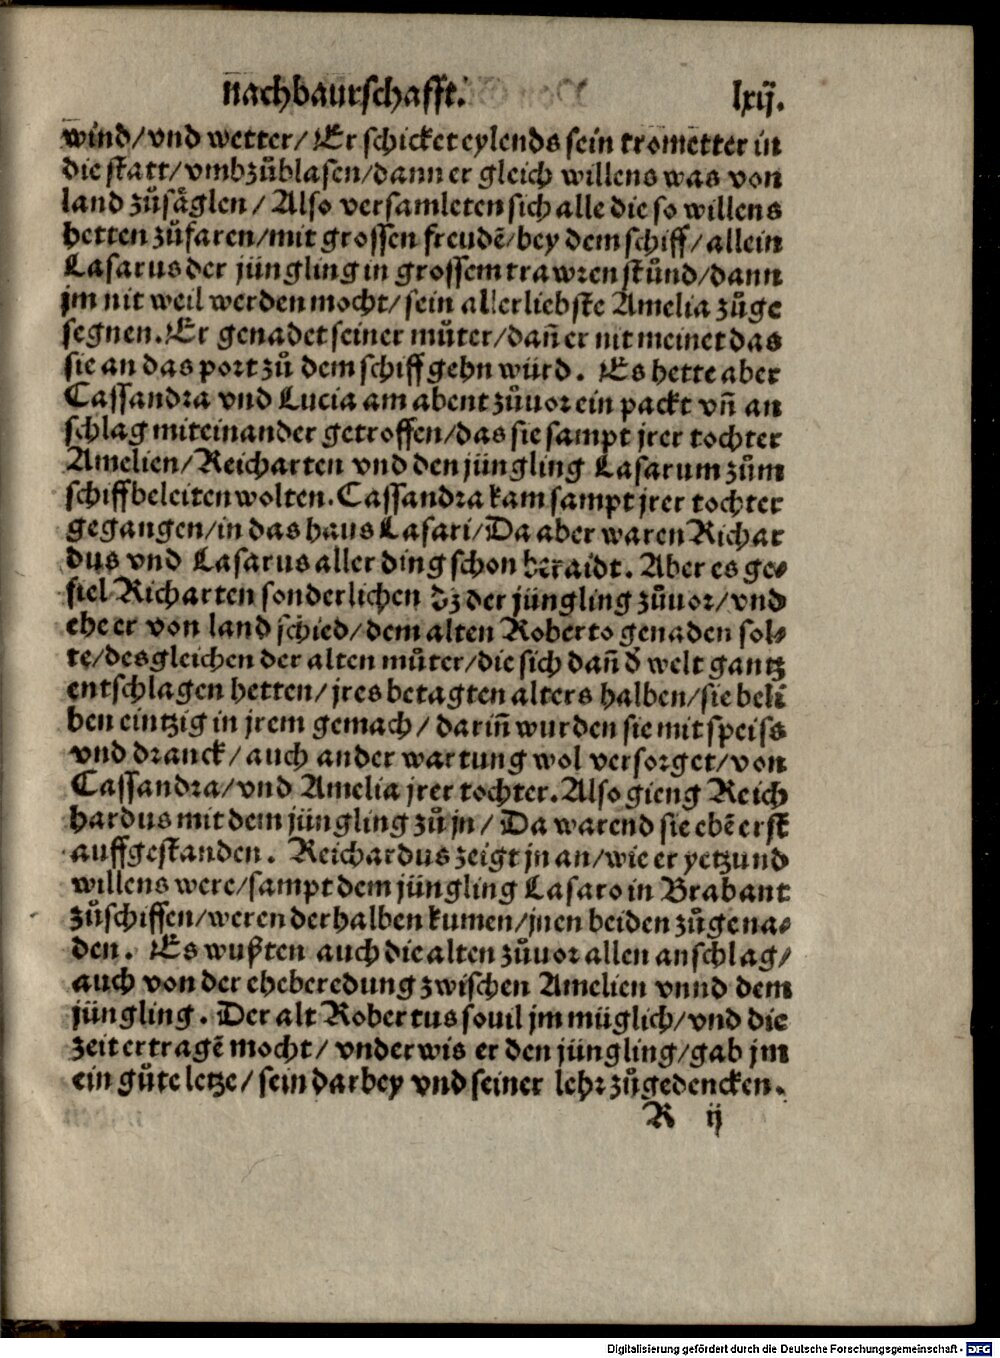 nachbaurschafft. lxij.
wind/vnd wetter/Er schicket eylends sein trometter in
die statt/vmbzůblasen/dann er gleich willens was von
land zůsäglen/ Also versamleten sich alle die so willens
hetten zůfaren/mit grossen freudē/bey dem schiff/allein
Lasarus der jüngling in grossem trawren stůnd/dann
jm nit weil werden mocht/sein allerliebste Amelia zůge
segnen. Er genadet seiner můter/dañ er nit meinet das
sie an das port zů dem schiff gehn würd. Es hette aber
Cassandra vnd Lucia am abent zůuor ein packt vñ an
schlag miteinander getroffen/das sie sampt jrer tochter
Amelien/Reicharten vnd den jüngling Lasarum zům
schiff beleiten wolten. Cassandra kam sampt jrer tochter
gegangen/in das haus Lasari/Da aber waren Richar
dus vnd Lasarus aller ding schon beraidt. Aber es ge⸗
fiel Richarten sonderlichen dz der jüngling zůuor/vnd
ehe er von land schied/dem alten Roberto genaden sol⸗
te/desgleichen der alten můter/die sich dañ d̄ welt gantz
entschlagen hetten/jres betagten alters halben/sie beli
ben eintzig in jrem gemach/ dariñ wurden sie mit speiss
vnd dranck/auch ander wartung wol versorget/von
Cassandra/vnd Amelia jrer tochter. Also gieng Reich
hardus mit dem jüngling zů jn/ Da warend sie ebē erst
auffgestanden. Reichardus zeigt jn an/wie er yetzund
willens were/sampt dem jüngling Lasaro in Brabant
zůschiffen/weren derhalben kumen/jnen beiden zůgena⸗
den. Es wußten auch die alten zůuor allen anschlag/
auch von der eheberedung zwischen Amelien vnnd dem
jüngling. Der alt Robertus souil jm müglich/vnd die
zeit ertragē mocht/ vnderwis er den jüngling/gab jm
ein gůte letze/sein darbey vnd seiner lehr zůgedencken.
R ij
Digitalisierung gefördert durch die Deutsche Forschungsgemeinschaft - DFG